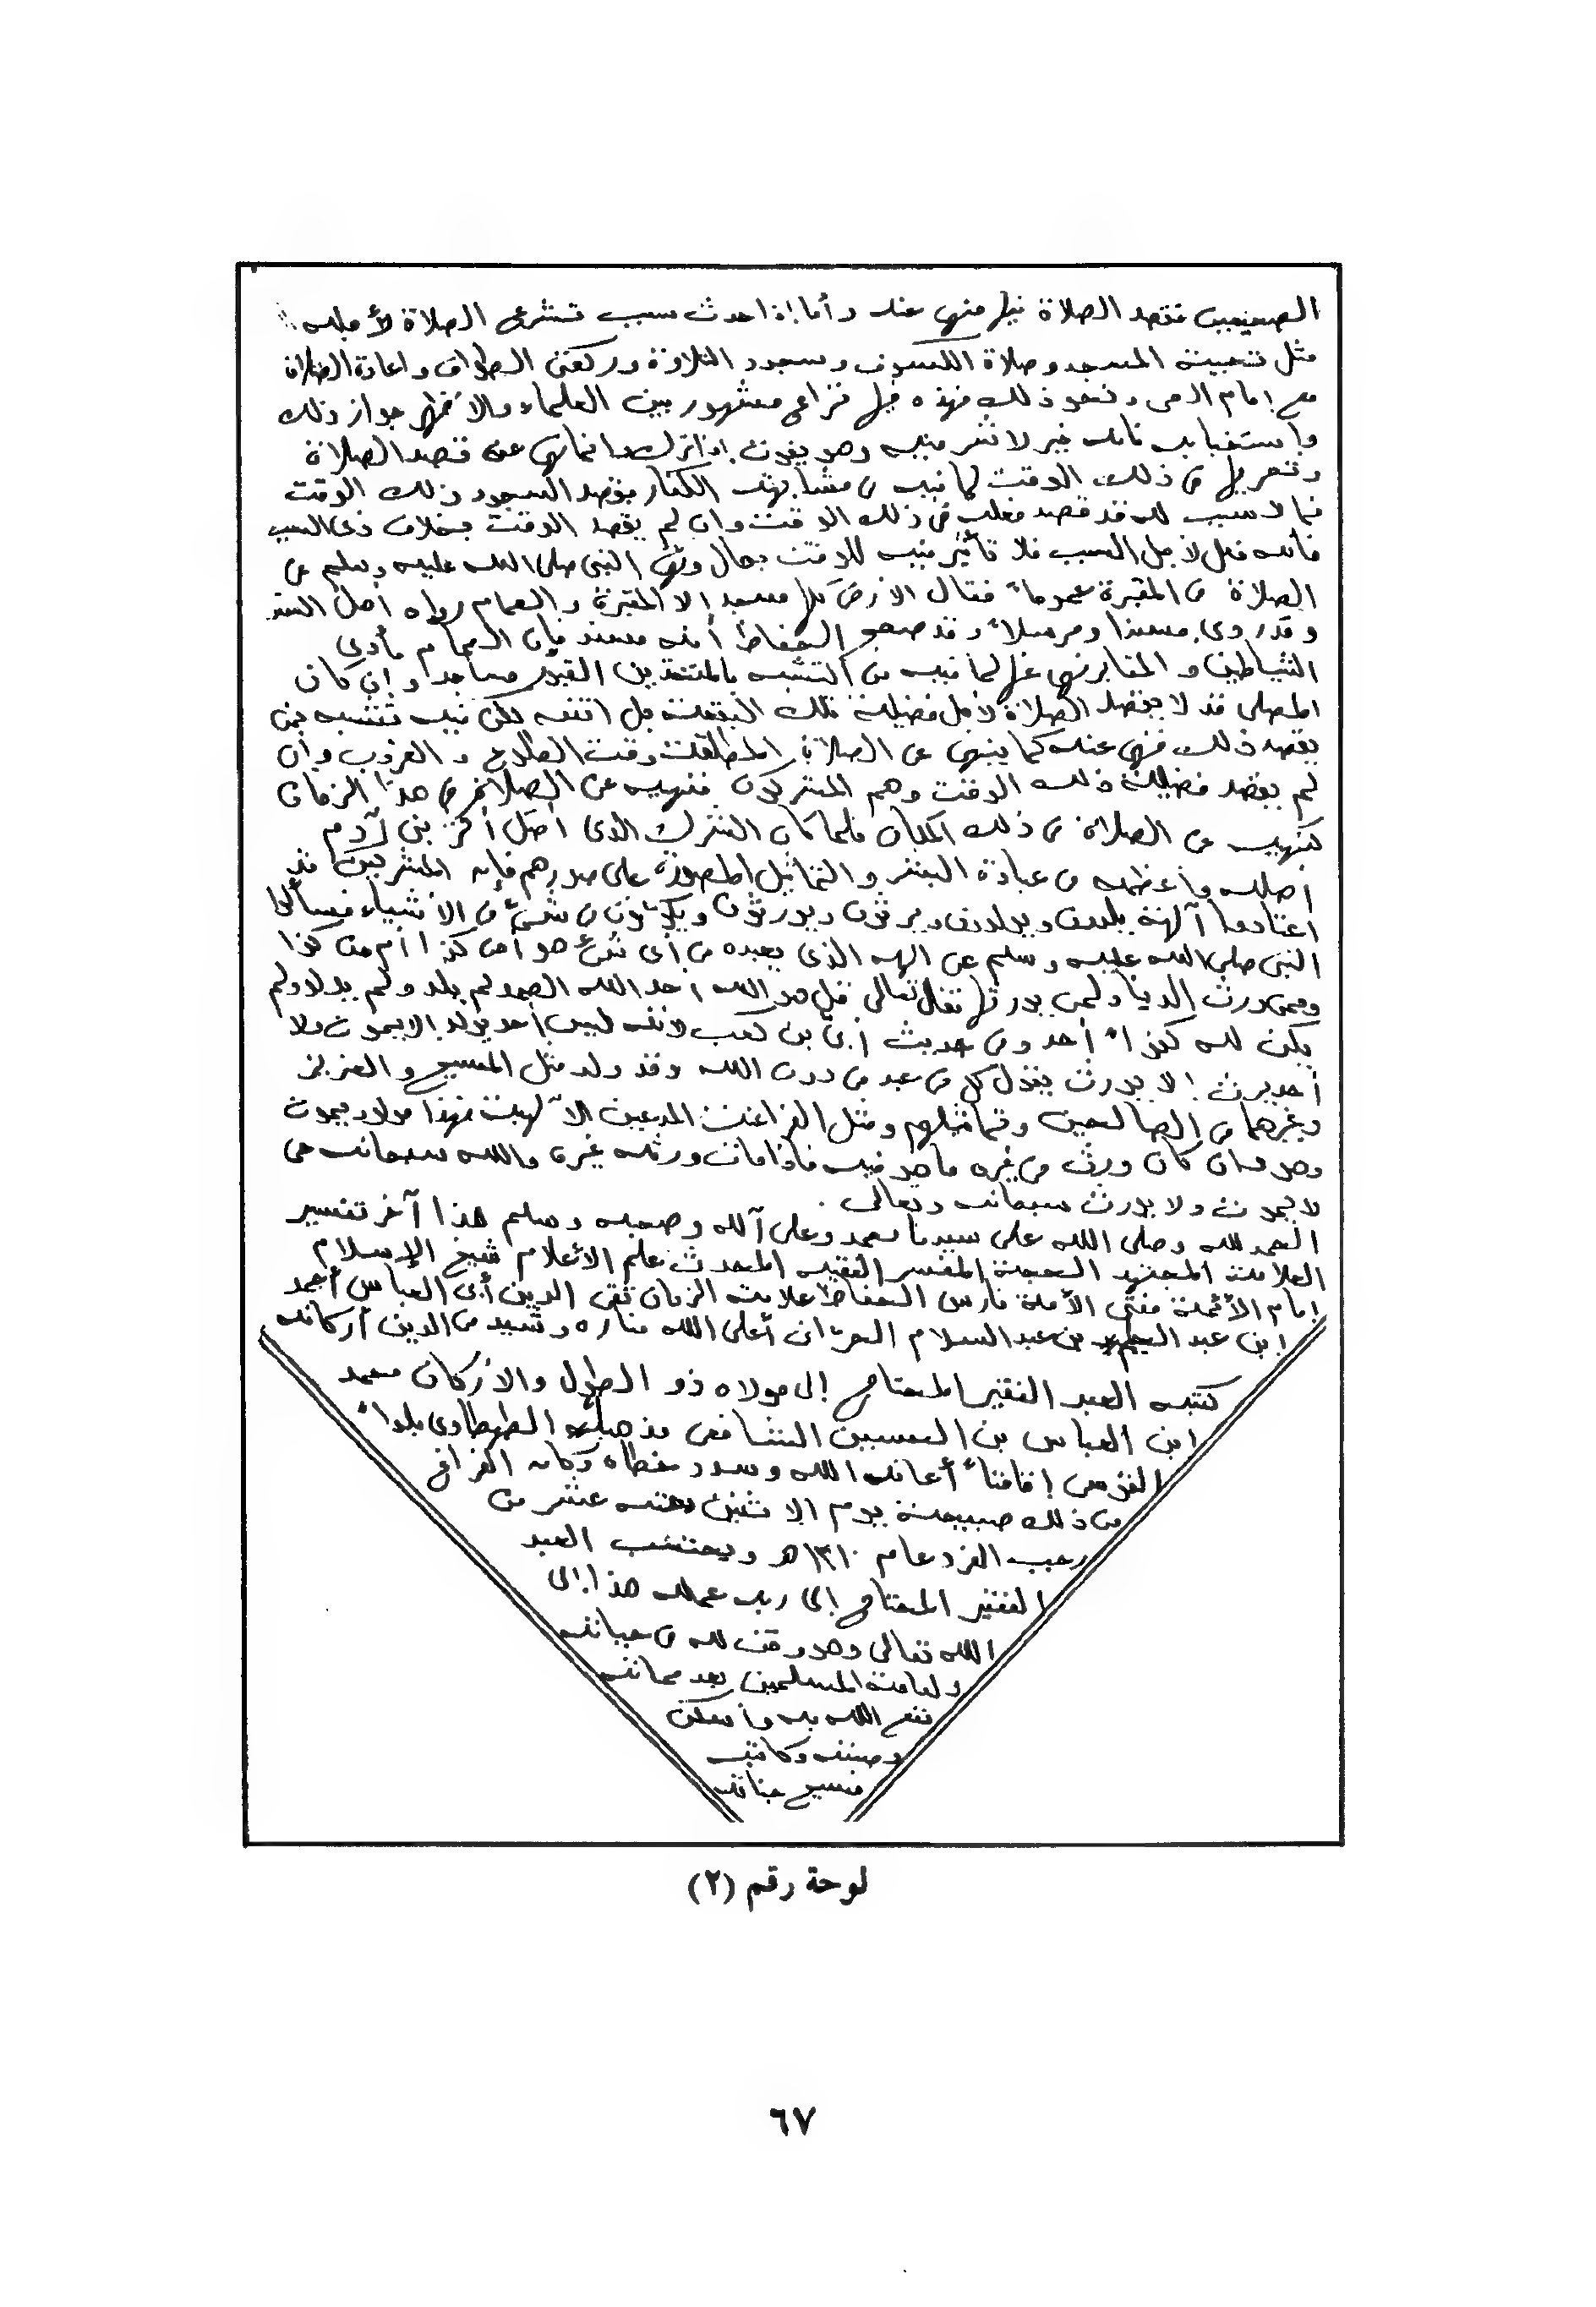 الصحيحين فقصد الصلاة فيها منهى عنه وأما إذا حدث سبب تشرع الصلاة لأجله
مثل تحية المسجد وصلاة الكسوف وسجود التلاوة وركعتى الطواف واعادة الصلاة
مع إمام الحى ونحو ذلك فهذه فيها نزاع مشهور بين العلماء والأظهر جواز ذلك
واستحبابه فانه خير لا شر فيه وهو يفوت إذا ترك وانما نهى عن قصد الصلاة
وتحريها فى ذلك الوقت لما فيه من مشابهة الكفار بقصد السجود ذلك الوقت
فما لا سبب له قد قصد فعله فى ذلك الوقت وان لم يقصد الوقت بخلاف ذى السبب
فانه فعل لأجل السبب فلا تأثير فيه للوقت بحال ونهى النبى صلى الله عليه وسلم عن
الصلاة فى المقبرة عموماً فقال الأرض كلها مسجد إلا المقبرة والحمام رواه أهل السنن
وقد روى مسندا ومرسلاً وقد صحح الحفاظ أنه مسند فإن الحمام مأوى
الشياطين والمقابر نهى عنها لما فيه من التشبه بالمتخذين القبور مساجد وإن كان
المصلى قد لا يقصد الصلاة لأجل فضيلة تلك البقعة بل اتفق لكن فيه تشبه بمن
يقصد ذلك فنهى عنه كما ينهى عن الصلاة المطلقة وقت الطلوع والغروب وان
لم يقصد فضيلة ذلك الوقت وهم المشركون فنهيه عن الصلاة فى هذا الزمان
كنهيه عن الصلاة فى ذلك المكان فلما كان الشرك الذى أضل أكثر بنى آدم
أصله وأعظمه من عبادة البشر والتماثيل المصورة على صورهم فإن المشركين قد
اعتادوا آلهة يلدون ويولدون ويرثون ويورثون ويكونون من شئ من الأشياء فسألوا
النبى صلى الله عليه وسلم عن الهه الذى يعبده من أى شئ هو أمن كذا أم من كذا
وممن ورث الدنيا ولمن يورثها فقال تعالى قل هو الله احد الله الصمد لم يلد ولم يولد ولم
يكن له كفواً أحد وفى حديث أبى بن كعب لأنه ليس أحد يولد الا يموت ولا
أحد يرث إلا يورث يقول كل من عبد من دون الله وقد ولد مثل المسيح والعزيز
وغيرهما من الصالحين وتماثيلهم ومثل الفراعنة المدعين الآلهية فهذا مولود يموت
وهو وان كان ورث من غيره ما هو فيه فاذا مات ورثه غيره والله سبحانه حى
لا يموت ولا يورث سبحانه وتعالى .
الحمد لله وصلى الله على سيدنا محمد وعلى آله وصحبه وسلم هذا آخر تفسير
العلامة المجتهد الحجة المفسر الفقيه المحدث علم الأعلام شيخ الإسلام
إمام الأئمة مفتى الأمة فارس الحفاظ علامة الزمان تقى الدين أبى العباس أحمد
ابن عبد الحليم بن عبد السلام الحرانى أعلى الله مناره وشيد من الدين أركانه
كتبه العبد الفقير المحتاج إلى مولاه ذو الطول والأركان محمد
ابن العباس بن الحسين الشافعى مذهباً الطهطاوى بلداً
إقامتاً أعانه الله وسدد خطاه وكان الفراغ
من ذلك صبيحة يوم الاثنين عشر من
رجب الفرد عام ١٣١٠هـ ويحتسب العبد
الفقير المحتاج إلى ربه عمله هذا إلى
الله تعالى وهو وقف لله فى حياته
ولعامة المسلمين بعد مماته
نفع الله به وأسكن
وكاتبه
فسيح جناته
لوحة رقم (٢)
٦٧